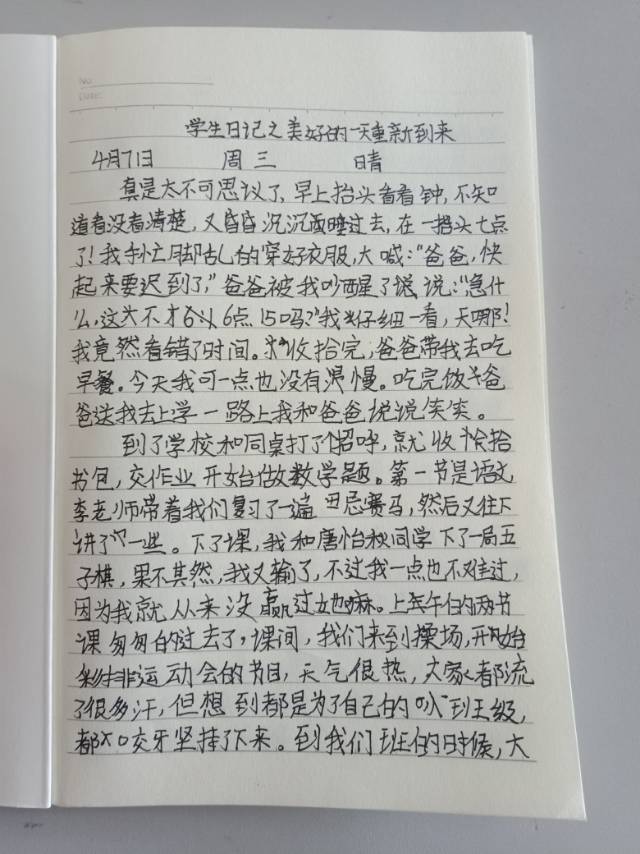 No
Date
学生日记之美好的一天重新到来
4月7日 周三 晴
真是太不可思议了，早上抬头看看钟，不知
道看没看清楚，又昏昏沉沉的睡过去，在一抬头七点
了！我手忙脚乱的穿好衣服，大喊：“爸爸，快
起来要迟到了，”爸爸被我吵醒了说：“急什
么，这才6点15吗？”我仔细一看，天哪！
我竟然看错了时间。收拾完，爸爸带我去吃
早餐。今天我可一点也没有浪慢。吃完饭爸
爸送我去上学一路上我和爸爸说说笑笑。
到了学校和同桌打了个招呼，就收拾
书包，交作业开始做数学题。第一节是语文
李老师带着我们复习了一遍田忌赛马，然后又往下
讲了一些。下了课，我和唐怡秋同学下了一局五
子棋，果不其然，我又输了，不过我一点也不难过，
因为我就从来没赢过她嘛。上午的两节
课匆匆的过去了，课间，我们来到操场，开始
彩排运动会的节目，天气很热，大家都流
了很多汗，但想到都是为了自己的班级，
都咬牙坚持了下来。到我们班的时候，大